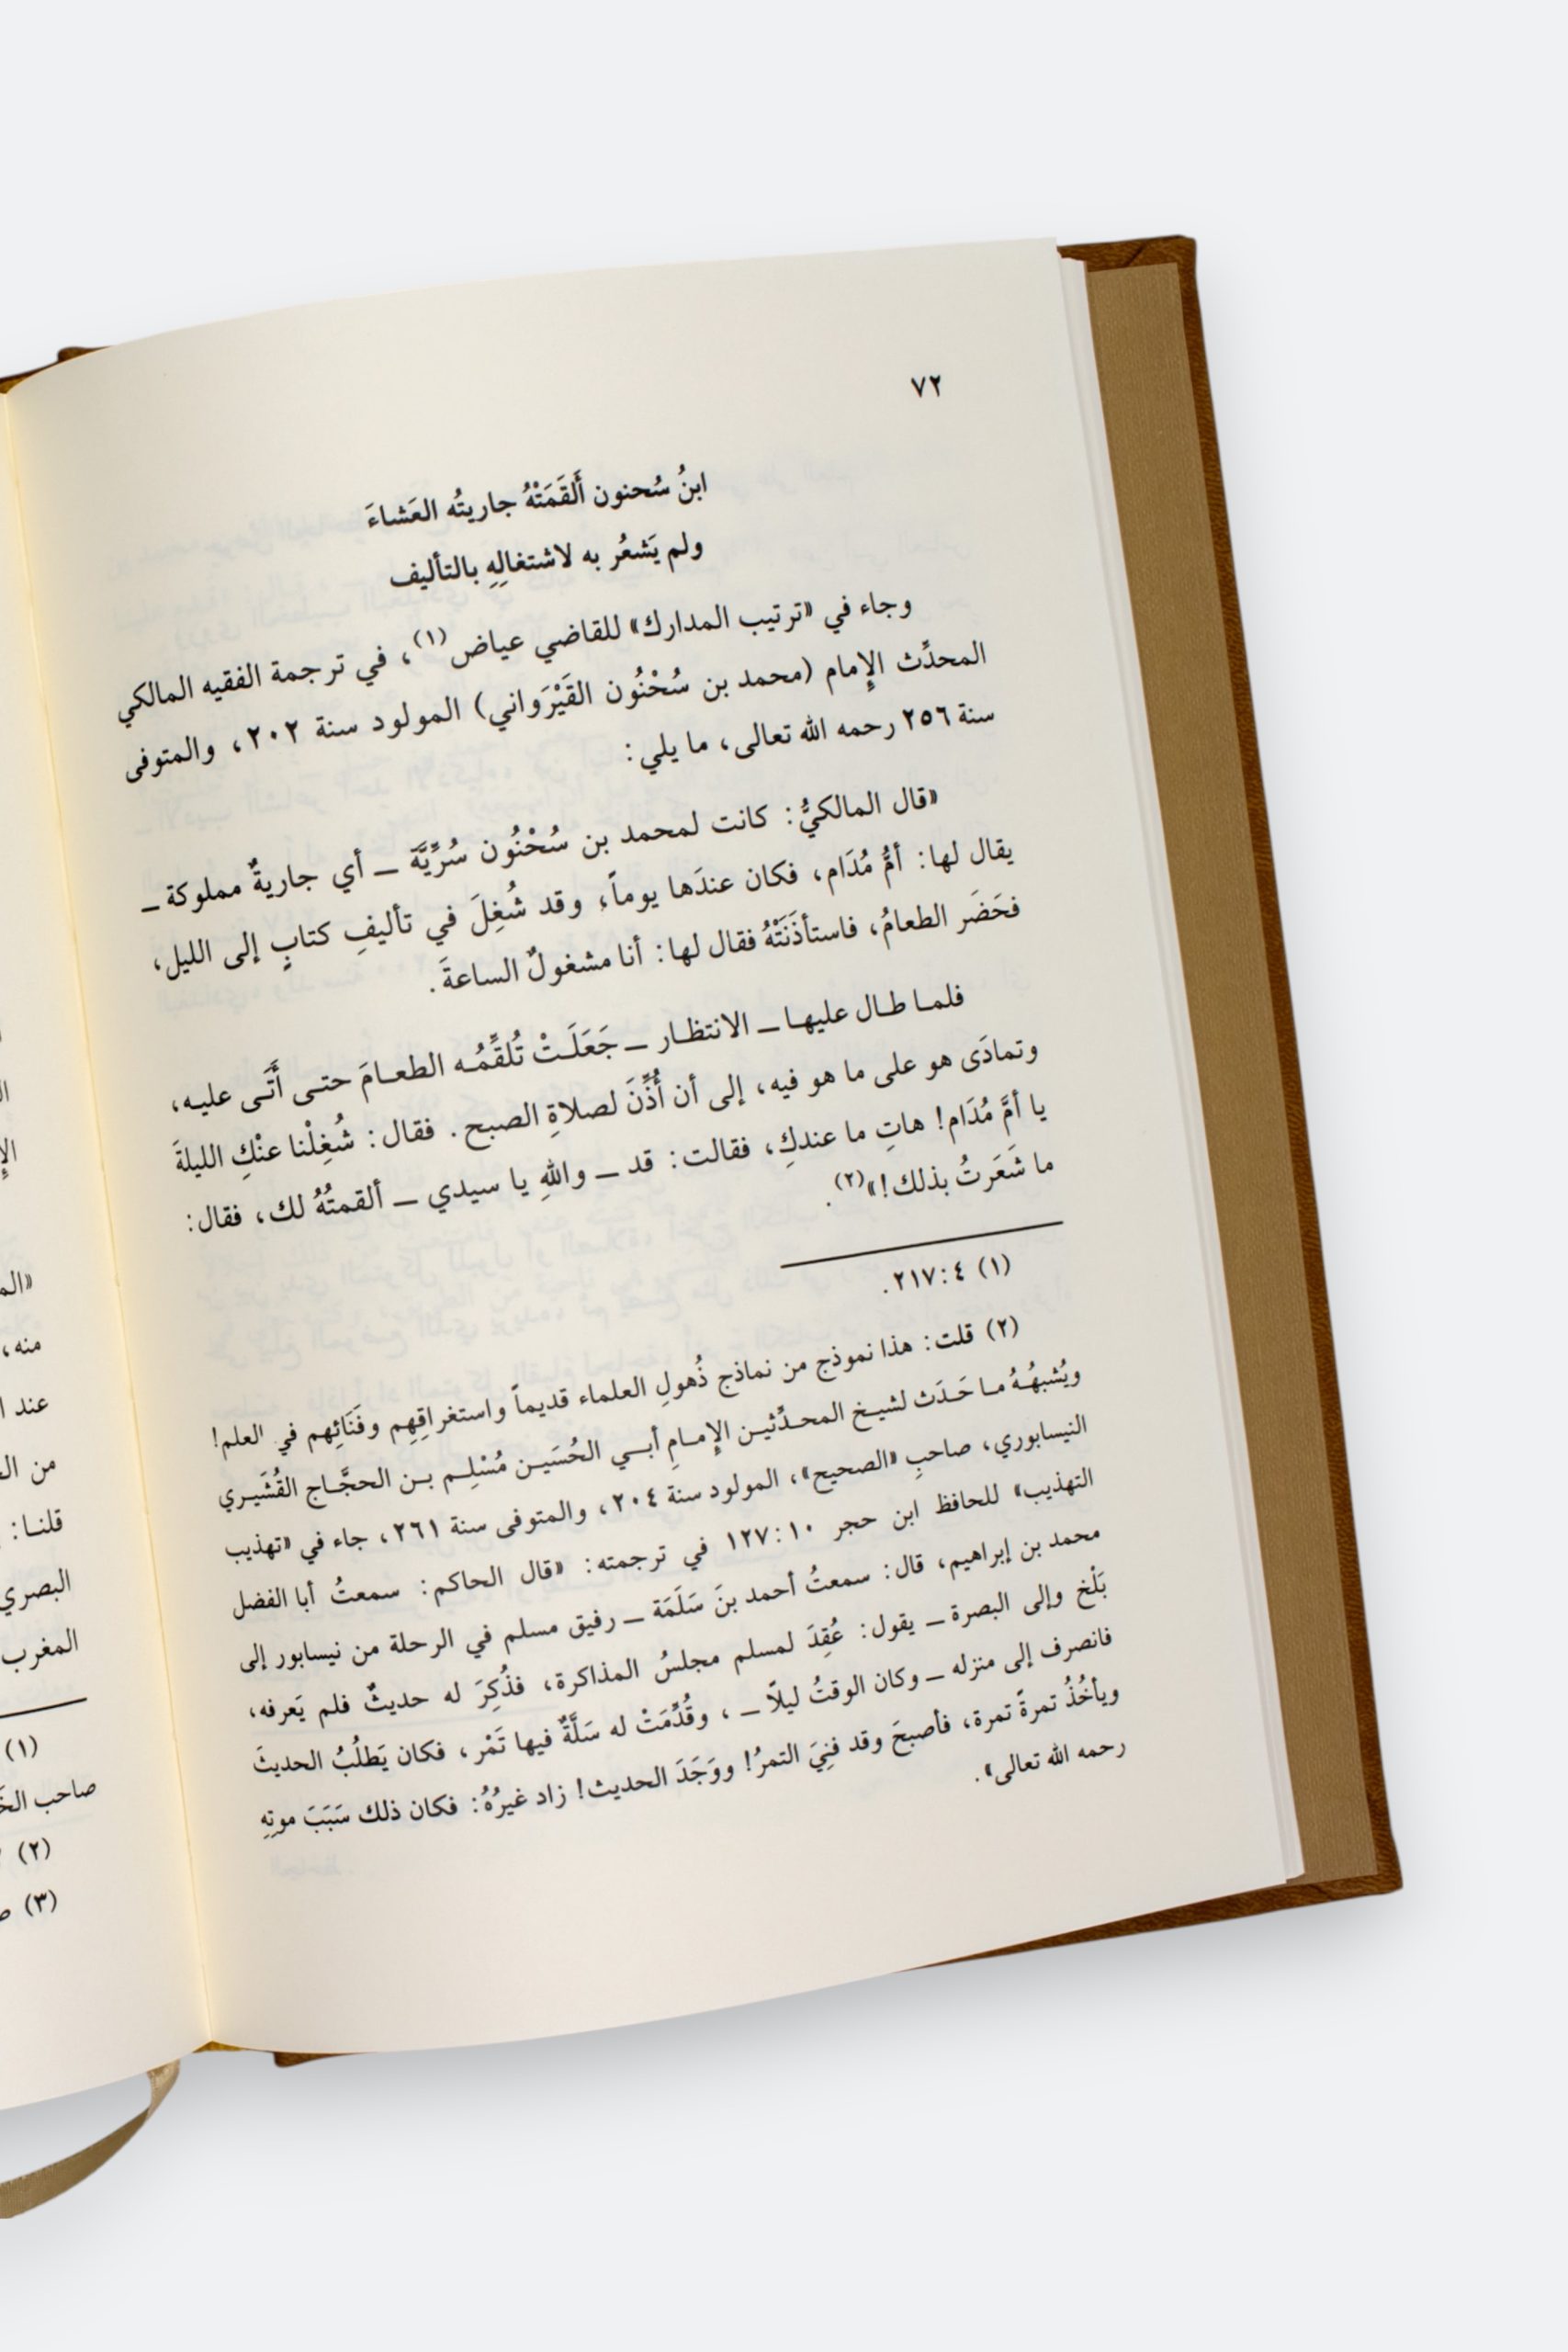 ٧٢
ابنُ سُحنون أَلقَمَتْهُ جاريتُه العَشاءَ
ولم يَشعُر به لاشتغالِهِ بالتأليف
وجاء في «ترتيب المدارك» للقاضي عياض(١)، في ترجمة الفقيه المالكي
المحدِّث الإِمام (محمد بن سُحْنُون القَيْرَواني) المولود سنة ٢٠٢، والمتوفى
سنة ٢٥٦ رحمه الله تعالى، ما يلي:
«قال المالكيُّ: كانت لمحمد بن سُحْنُون سُرِّيَّة ــ أي جاريةٌ مملوكة ــ
يقال لها: أمُّ مُدَام، فكان عندَها يوماً، وقد شُغِلَ في تأليفِ كتابٍ إلى الليل،
فحَضَر الطعامُ، فاستأذَنَتْهُ فقال لها: أنا مشغولٌ الساعةَ.
فلمـا طـال عليهـا ــ الانتظـار ــ جَعَلَـتْ تُلقِّمُـه الطعـامَ حتـى أَتَـى عليـه،
وتمادَى هو على ما هو فيه، إلى أن أُذِّنَ لصلاةِ الصبح. فقال: شُغِلْنا عنْكِ الليلةَ
يا أمَّ مُدَام! هاتِ ما عندكِ، فقالت: قد ــ واللهِ يا سيدي ــ ألقمتُهُ لك، فقال:
ما شَعَرتُ بذلك!»(٢).
(١) ٤:٢١٧.
(٢) قلت: هذا نموذج من نماذج ذُهولِ العلماء قديماً واستغراقِهِم وفَنَائِهم في العلم!
ويُشبهُـهُ مـا حَـدَث لشيـخ المحـدِّثيـن الإِمـامِ أبـي الحُسَيـن مُسْلِـم بـن الحجَّـاج القُشَيـري
النيسابوري، صاحبِ «الصحيح»، المولود سنة ٢٠٤، والمتوفى سنة ٢٦١، جاء في «تهذيب
التهذيب» للحافظ ابن حجر ١٠:١٢٧ في ترجمته: «قال الحاكم: سمعتُ أبا الفضل
محمد بن إبراهيم، قال: سمعتُ أحمد بنَ سَلَمَة ــ رفيق مسلم في الرحلة من نيسابور إلى
بَلْخ وإلى البصرة ــ يقول: عُقِدَ لمسلم مجلسُ المذاكرة، فذُكِرَ له حديثٌ فلم يَعرفه،
فانصرف إلى منزله ــ وكان الوقتُ ليلاً ــ، وقُدِّمَتْ له سَلَّةٌ فيها تَمْر، فكان يَطلُبُ الحديثَ
ويأخُذُ تمرةً تمرة، فأصبحَ وقد فنِيَ التمرُ! ووَجَدَ الحديث! زاد غيرُهُ: فكان ذلك سَبَبَ موتِهِ
رحمه الله تعالى».
منه،
عند
من
قلنـا:
البصري
المغرب
(١)
صاحب
(٢)
(٣)